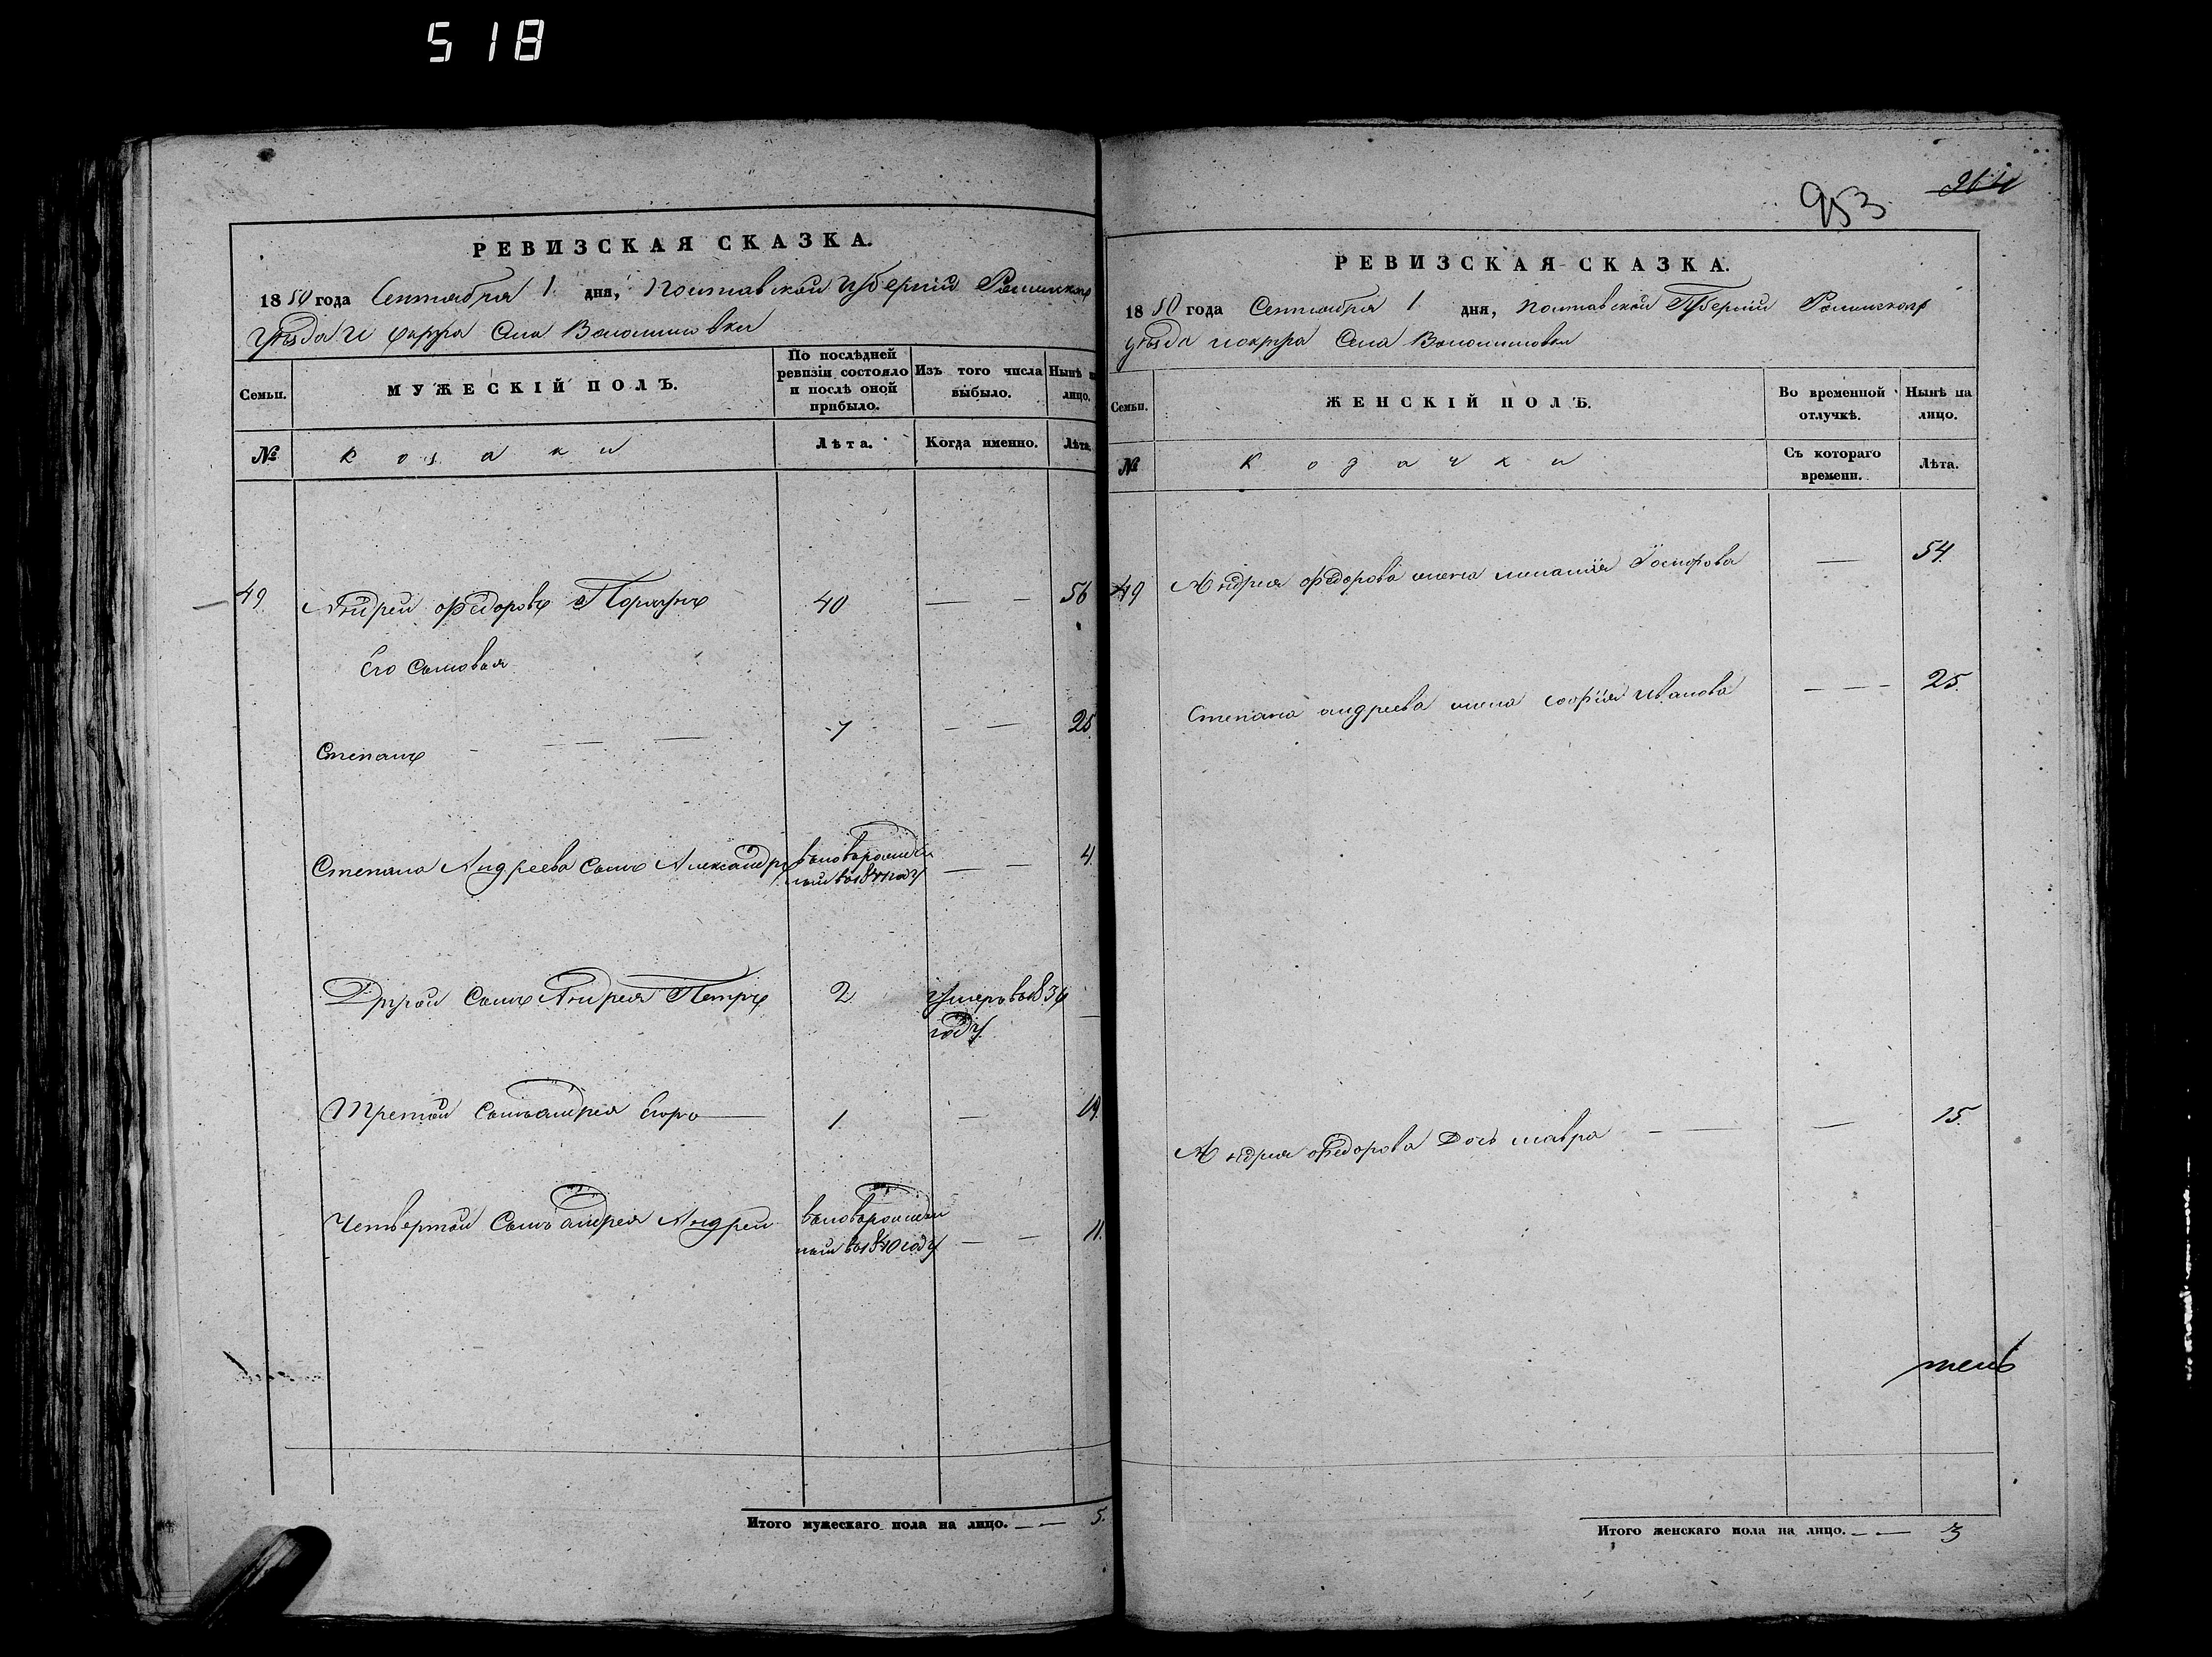 518
РЕВИЗСКАЯ СКАЗКА.
1850 года Сентября 1 дня, Полтавской Губернии Роменского
уѣзда и округа Села Волошиновки
Семьи.
МУЖЕСКІЙ ПОЛЪ.
По послѣдней ревизіи состояло и послѣ оной прибыло.
Изъ того числа выбыло.
Нынѣ на лицо.
№
козаки
Лѣта.
Когда именно.
Лѣта.
49. Андрей Федоровъ 40 — — 56
Его сыновья
Степанъ — — — 7 — — 25
Степана Андреева сынъ Александръ — — 4.
Другой сынъ Андрея Петръ 2 умеръ в
году —
Третій сынъ Андрея Егоръ — 1 — 19.
Четвертой сынъ Андрея Андрей новорожден
ный в 1840 году — — 11.
Итого мужескаго пола на лицо. — — 5.
953
264
РЕВИЗСКАЯ СКАЗКА.
1850 года Сентября 1 дня, Полтавской Губернии Роменского
уѣзда и округа Села Волошиновки
Семьи.
ЖЕНСКІЙ ПОЛЪ.
Во временной отлучкѣ.
Нынѣ на лицо.
№
козачки
Съ котораго времени.
Лѣта.
49 Андрея Федорова жена Іосифова — 54.
Степана Андреева жена Софія Иванова — — — 25.
Андрея Федорова дочь Мавра — — — 15.
Итого женскаго пола на лицо. — — 3